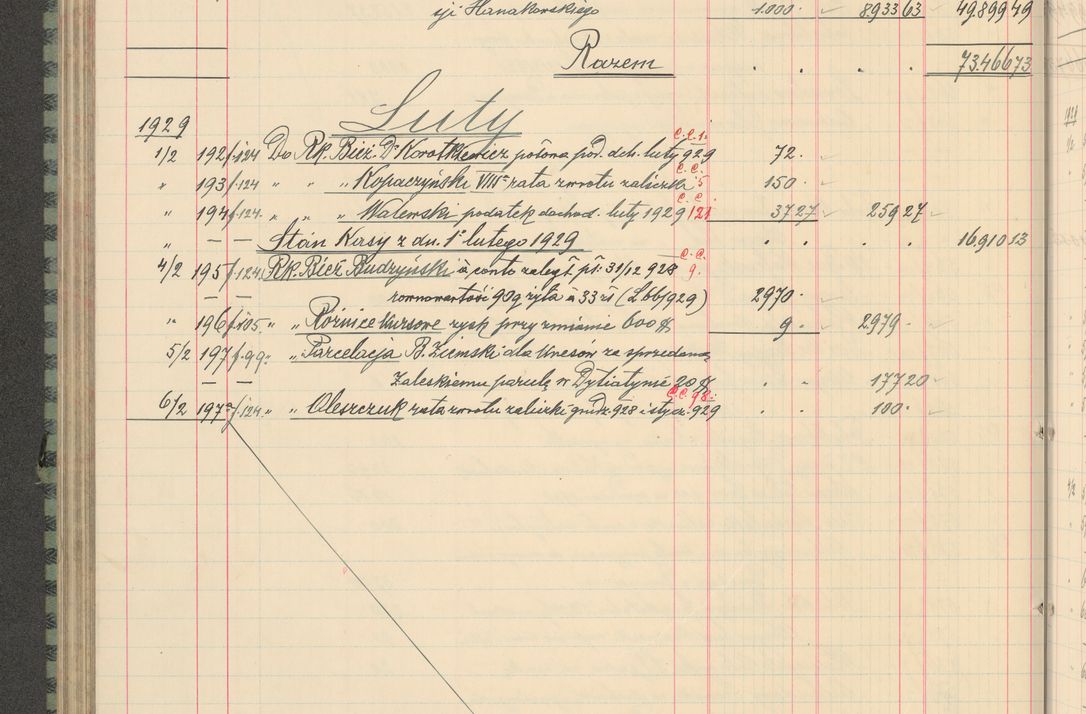 sji Hanakowskiego 1.000· 8933 63 49.899 49
Razem . . . . 73.466 73
Luty
1929
C.C.1.
1/2 192 f.124 Do Rk. Bież. Dr Korotkiewicz poż. luty 929 72.
C.C.
" 193 f.124 " " " Kopaczyński VIII rata zwrotu zaliczki 5 150.
C.C.
" 194 f.124. " " " Walewski podatek dochod. luty 1929 /21 37 27 259 27
" — — Stan Kasy z dn. 1º lutego 1929 . . . . 16.910 13
C.C.
4/2 195 f.124. Rk. Bież. Budzyński à conto 31/12 928 9.
— — równowartość 90 q żyta à 33 zł (L. 66/929) 2970.
" 196 f.105. " " Różnice Kursowe zysk przy zmianie 600 $ 9. 2979.
5/2 197 f.99. " Parcelacja B. Ziemski dla Wnesów za sprzedaną
— — Zaleskiemu parcelę w Dytiatynie 20 $ . . 177 20
C.C. 98.
6/2 197a f.124. " " Oleszczuk rata zwrotu zaliczki grudz. 928 i stycz. 929 . . 100.